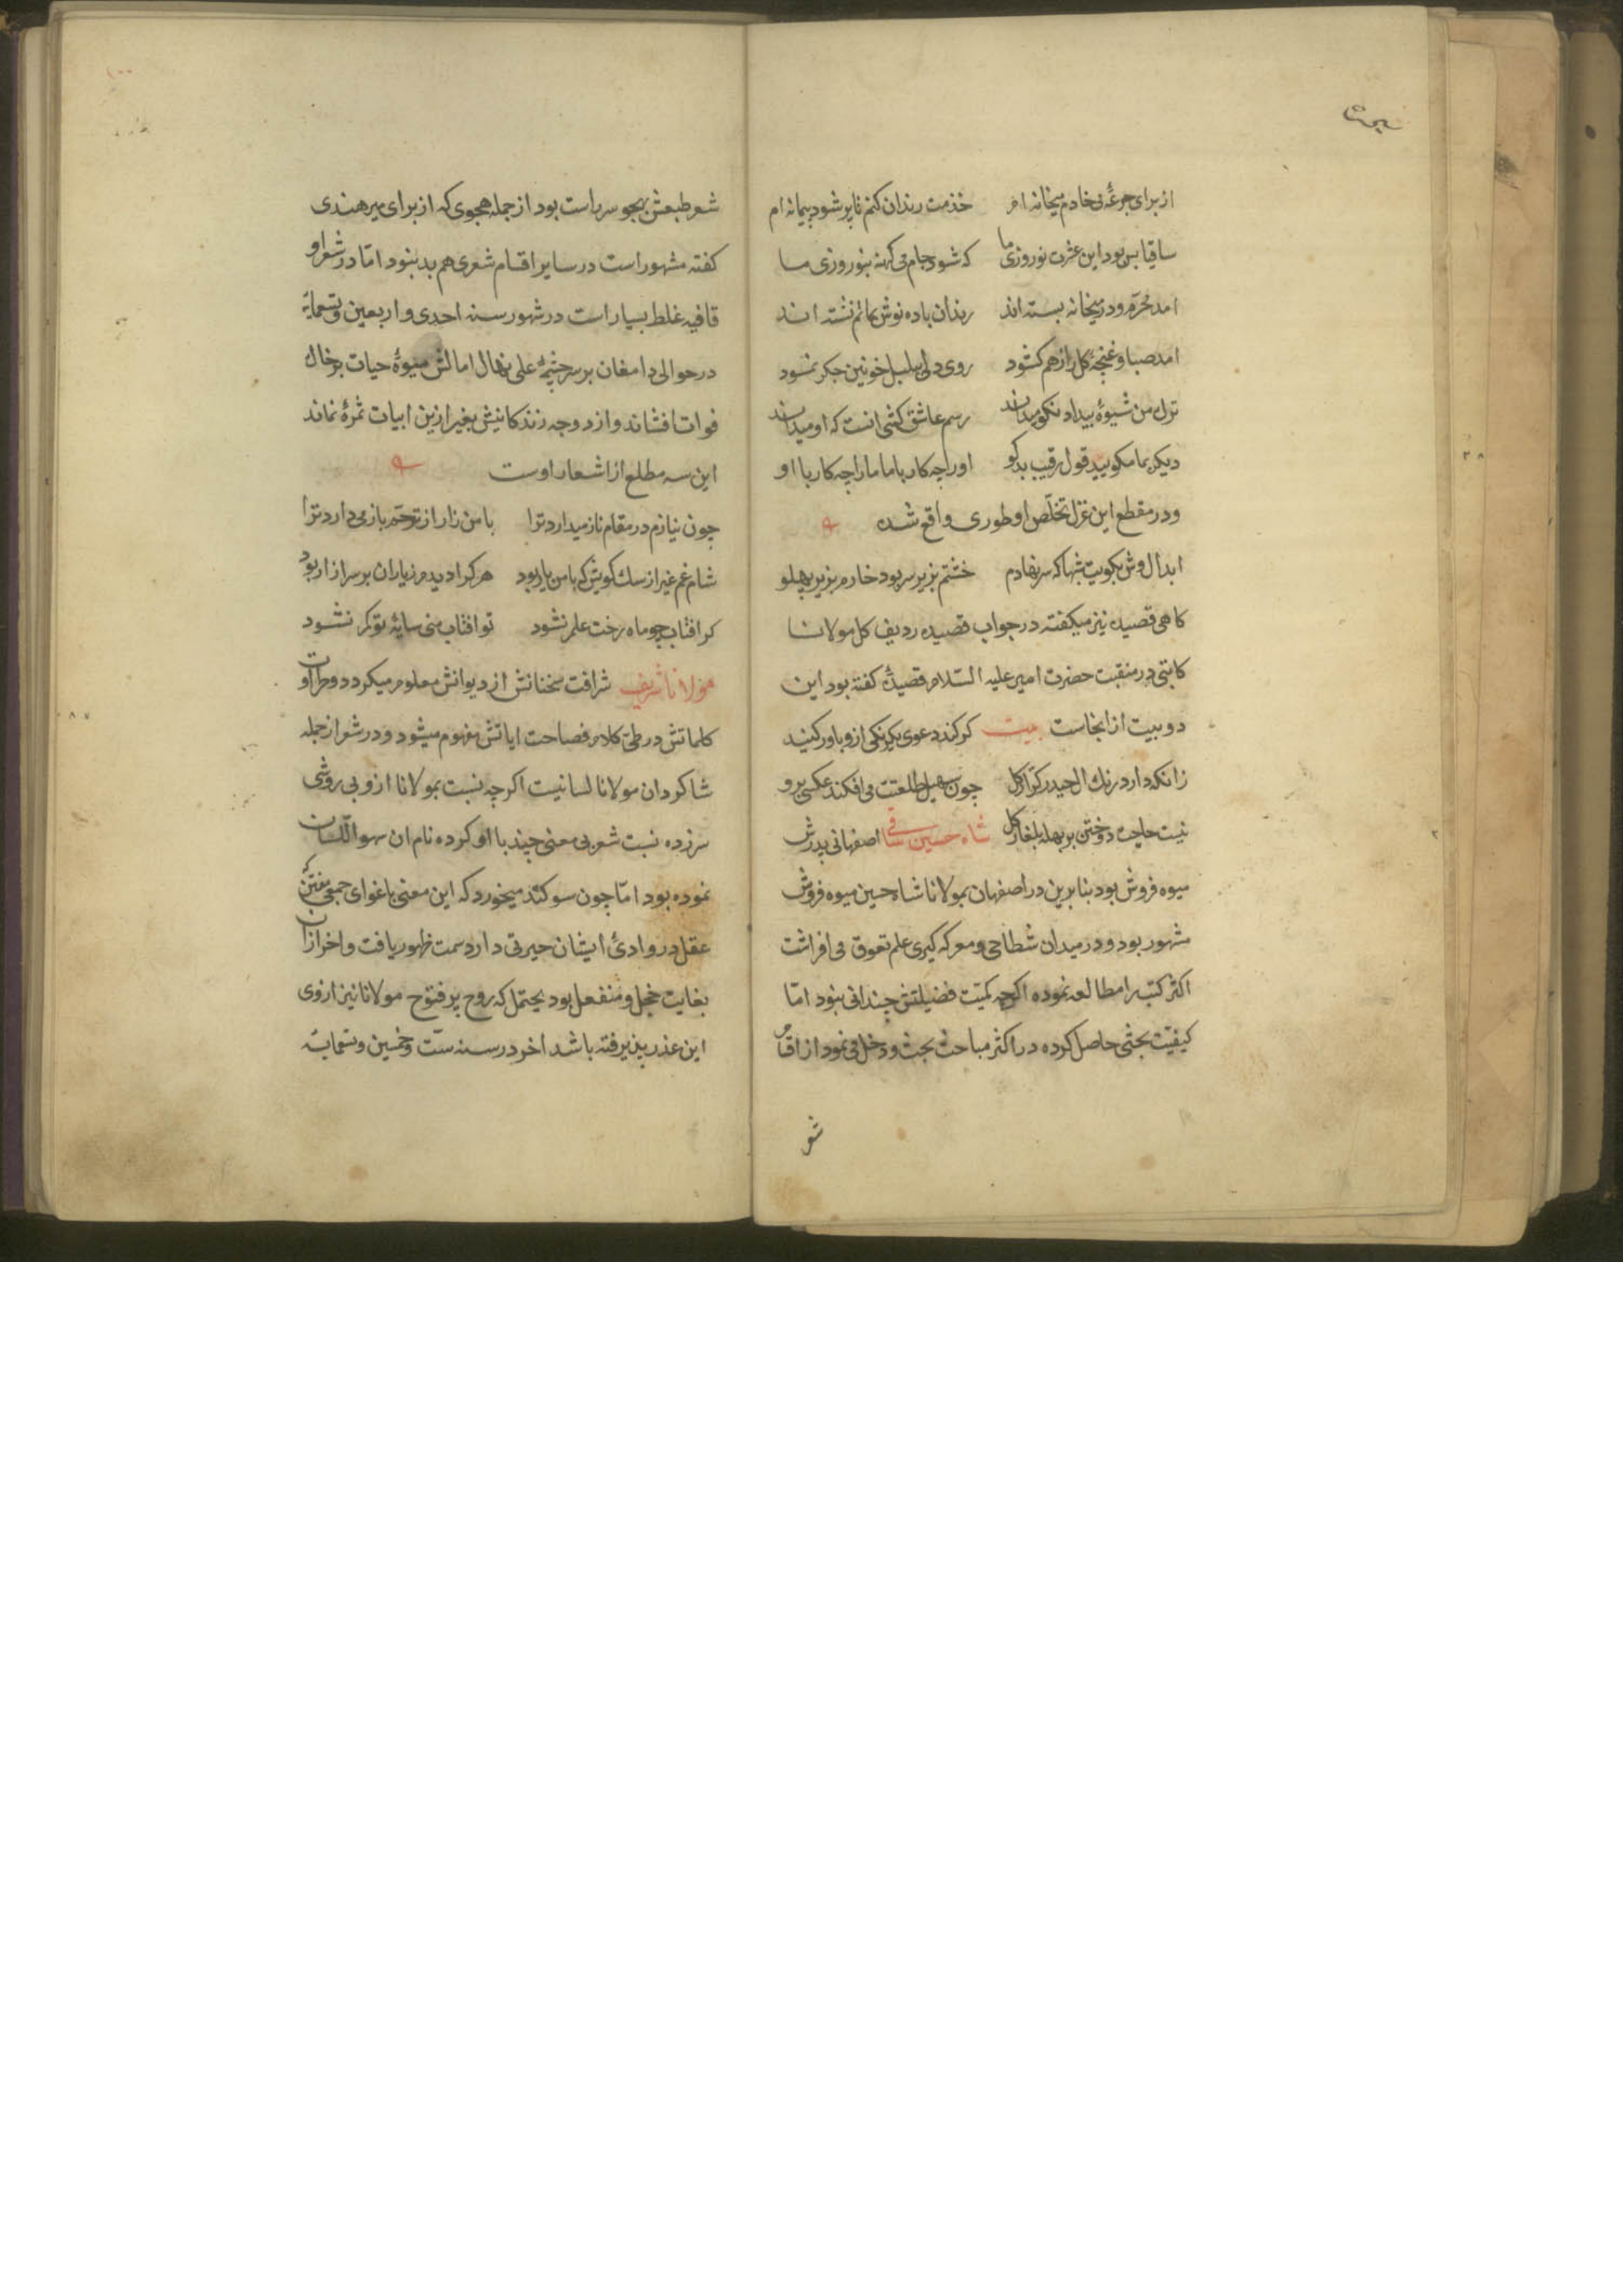 از برای جرعهٔ می خادم میخانه ام خدمت رندان کنم تا پر شود پیمانه ام
ساقیا بس بود این عشرت نوروزی ما که شود جام می کهنه بنوروزی ما
امد محرّم و در میخانه بسته اند رندان باده نوش بماتم نشسته اند
امد صبا و غنچهٔ کل را ز هم کشود روی دلی ببلبل خونین جکر نمود
ترک من شیوهٔ بیداد نکو میداند رسم عاشق کشی انست که او میداند
دیکر بما مکویید قول رقیب بدکو او را چه کار با ما ما را چه کار با او
و در مقطع این غزل تخلّص او طوری واقع شده
ابدال وش بکویت شبها که سر نهادم خشتم بزیر سر بود خارم بزیر پهلو
کاهی قصیده نیز میکفته در جواب قصیده ردیف کل مولانا
کاتبی در منقبت حضرت امیر علیه السّلام قصیدهٔ کفته بود این
دو بیت از انجاست بیت کر کند دعوی یکرنکی ازو باور کنید
زانکه دارد رنك ال حیدر کرّار کل چون سهیل طلعتت می افکند عکسی برو
نیست حاجت دوختن بر بهله بلغار کل شاه حسین ساقی اصفهانی پدرش
میوه فروش بود بنا برین در اصفهان بمولانا شاه حسین میوه فروش
مشهور بود و در میدان شطاحی و معرکه کیری علم تفوق می افراشت
اکثر کتب را مطالعه نموده اکرچه کمیّت فضیلتش چندانی نبود امّا
کیفیّت بحثی حاصل کرده در اکثر مباحث بحث و دخل می نمود از اقسام
شعر
شعر طبعش بهجو سر راست بود از جمله هجوی که از برای میر هندی
کفته مشهور است در سایر اقسام شعری هم بد نبود امّا در شعر او
قافیه غلط بسیار است در شهور سنه احدی و اربعین و تسعمایة
در حوالی دامغان بر سر چشمهٔ علی نهال امالش میوهٔ حیات بر خاك
فوات افشاند و از دوحه زندکانیش بغیر ازین ابیات ثمرهٔ نماند
این سه مطلع از اشعار اوست
چون نیازم در مقام ناز میدارد ترا با من زار از ترحّم باز می دارد ترا
شام غم غیر از سك کویش که با من یار بود هر کرا دیدم ز یاران بر سر ازار بود
کر افتاب چو ماه رخت علم نشود تو افتاب منی سایهٔ تو کم نشود
مولانا شریف شرافت سخنانش از دیوانش معلوم میکردد و حرارت
کلماتش در طیّ کلام فصاحت ایاتش مفهوم میشود و در شعر از جمله
شاکردان مولانا لسانیست اکرچه نسبت بمولانا ازو بی روشی
سرزده نسبت شعر بی معنی چند با او کرده نام ان سهو اللّسان
نموده بود امّا چون سوکند میخورد که این معنی باغوای جمعی مفتّن که
عقل در وادئ ایشان حیرتی دارد سمت ظهور یافت و اخر از ان
بغایت خجل و منفعل بود یحتمل که روح پر فتوح مولانا نیز از وی
این عذر پذیرفته باشد اخر در سنه ستّ و خمسین و تسعمایة